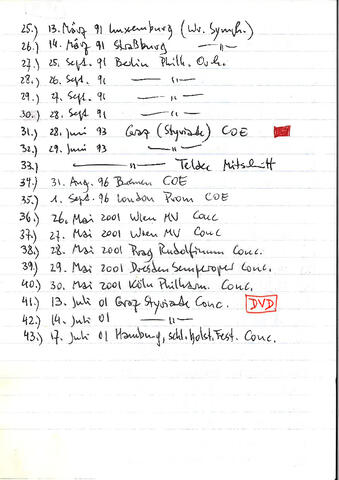 25.) 13. März 91 Luxemburg (Wr. Symph.)
26.) 14. März 91 Straßburg —"—
27.) 25. Sept. 91 Berlin Philh. Orch.
28.) 26. Sept. 91 —"—
29.) 27. Sept. 91 —"—
30.) 28. Sept. 91 —"—
31.) 28. Juni 93 Graz (Styriade) COE
32.) 29. Juni 93 —"—
33.) —"— Teldec Mitschnitt
34.) 31. Aug. 96 Bremen COE
35.) 1. Sept. 96 London Prom COE
36.) 26. Mai 2001 Wien MV Conc
37.) 27. Mai 2001 Wien MV Conc
38.) 28. Mai 2001 Prag Rudolfinum Conc.
39.) 29. Mai 2001 Dresden Semperoper Conc.
40.) 30. Mai 2001 Köln Philharm. Conc.
41.) 13. Juli 01 Graz Styriade Conc. DVD
42.) 14. Juli 01 —"—
43.) 17. Juli 01 Hamburg, schl. Holst. Fest. Conc.